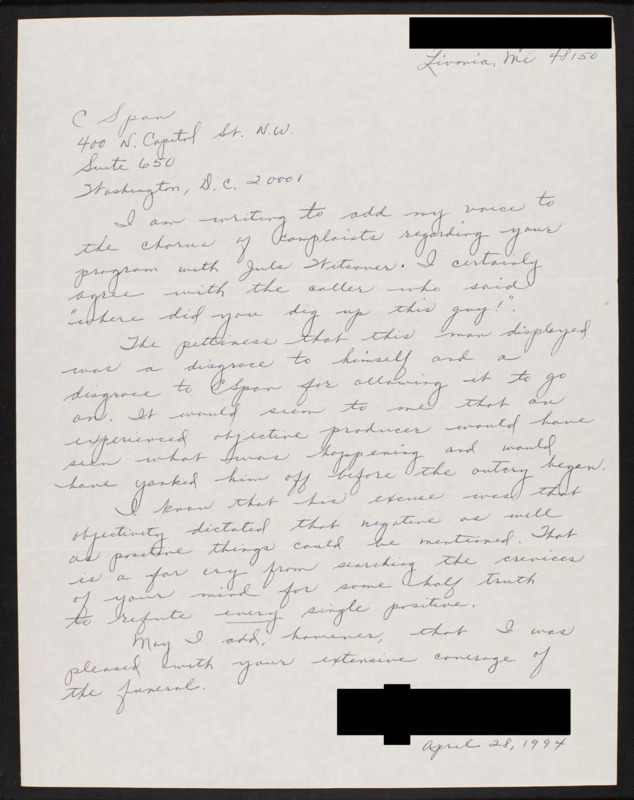 Livonia, Mi 48150
C Span
400 N. Capitol St. N.W.
Suite 650
Washington, D.C. 20001
I am writing to add my voice to
the chorus of complaists regarding your
program with Juls Witcover. I certainly
agree with the caller who said
"where did you dig up this guy!".
The pettiness that this man displayed
was a disgrace to himself and a
disgrace to CSpan for allowing it to go
on. It would seem to me that an
experienced objective producer would have
seen what was happening and would
have yanked him off before the outcry began.
I know that his excuse was that
objectivity dictated that negative as well
as positive things could be mentioned. That
is a far cry from searching the crevices
of your mind for some half truth
to refute every single positive.
May I add, however, that I was
pleased with your extensive coverage of
the funeral.
April 28, 1994